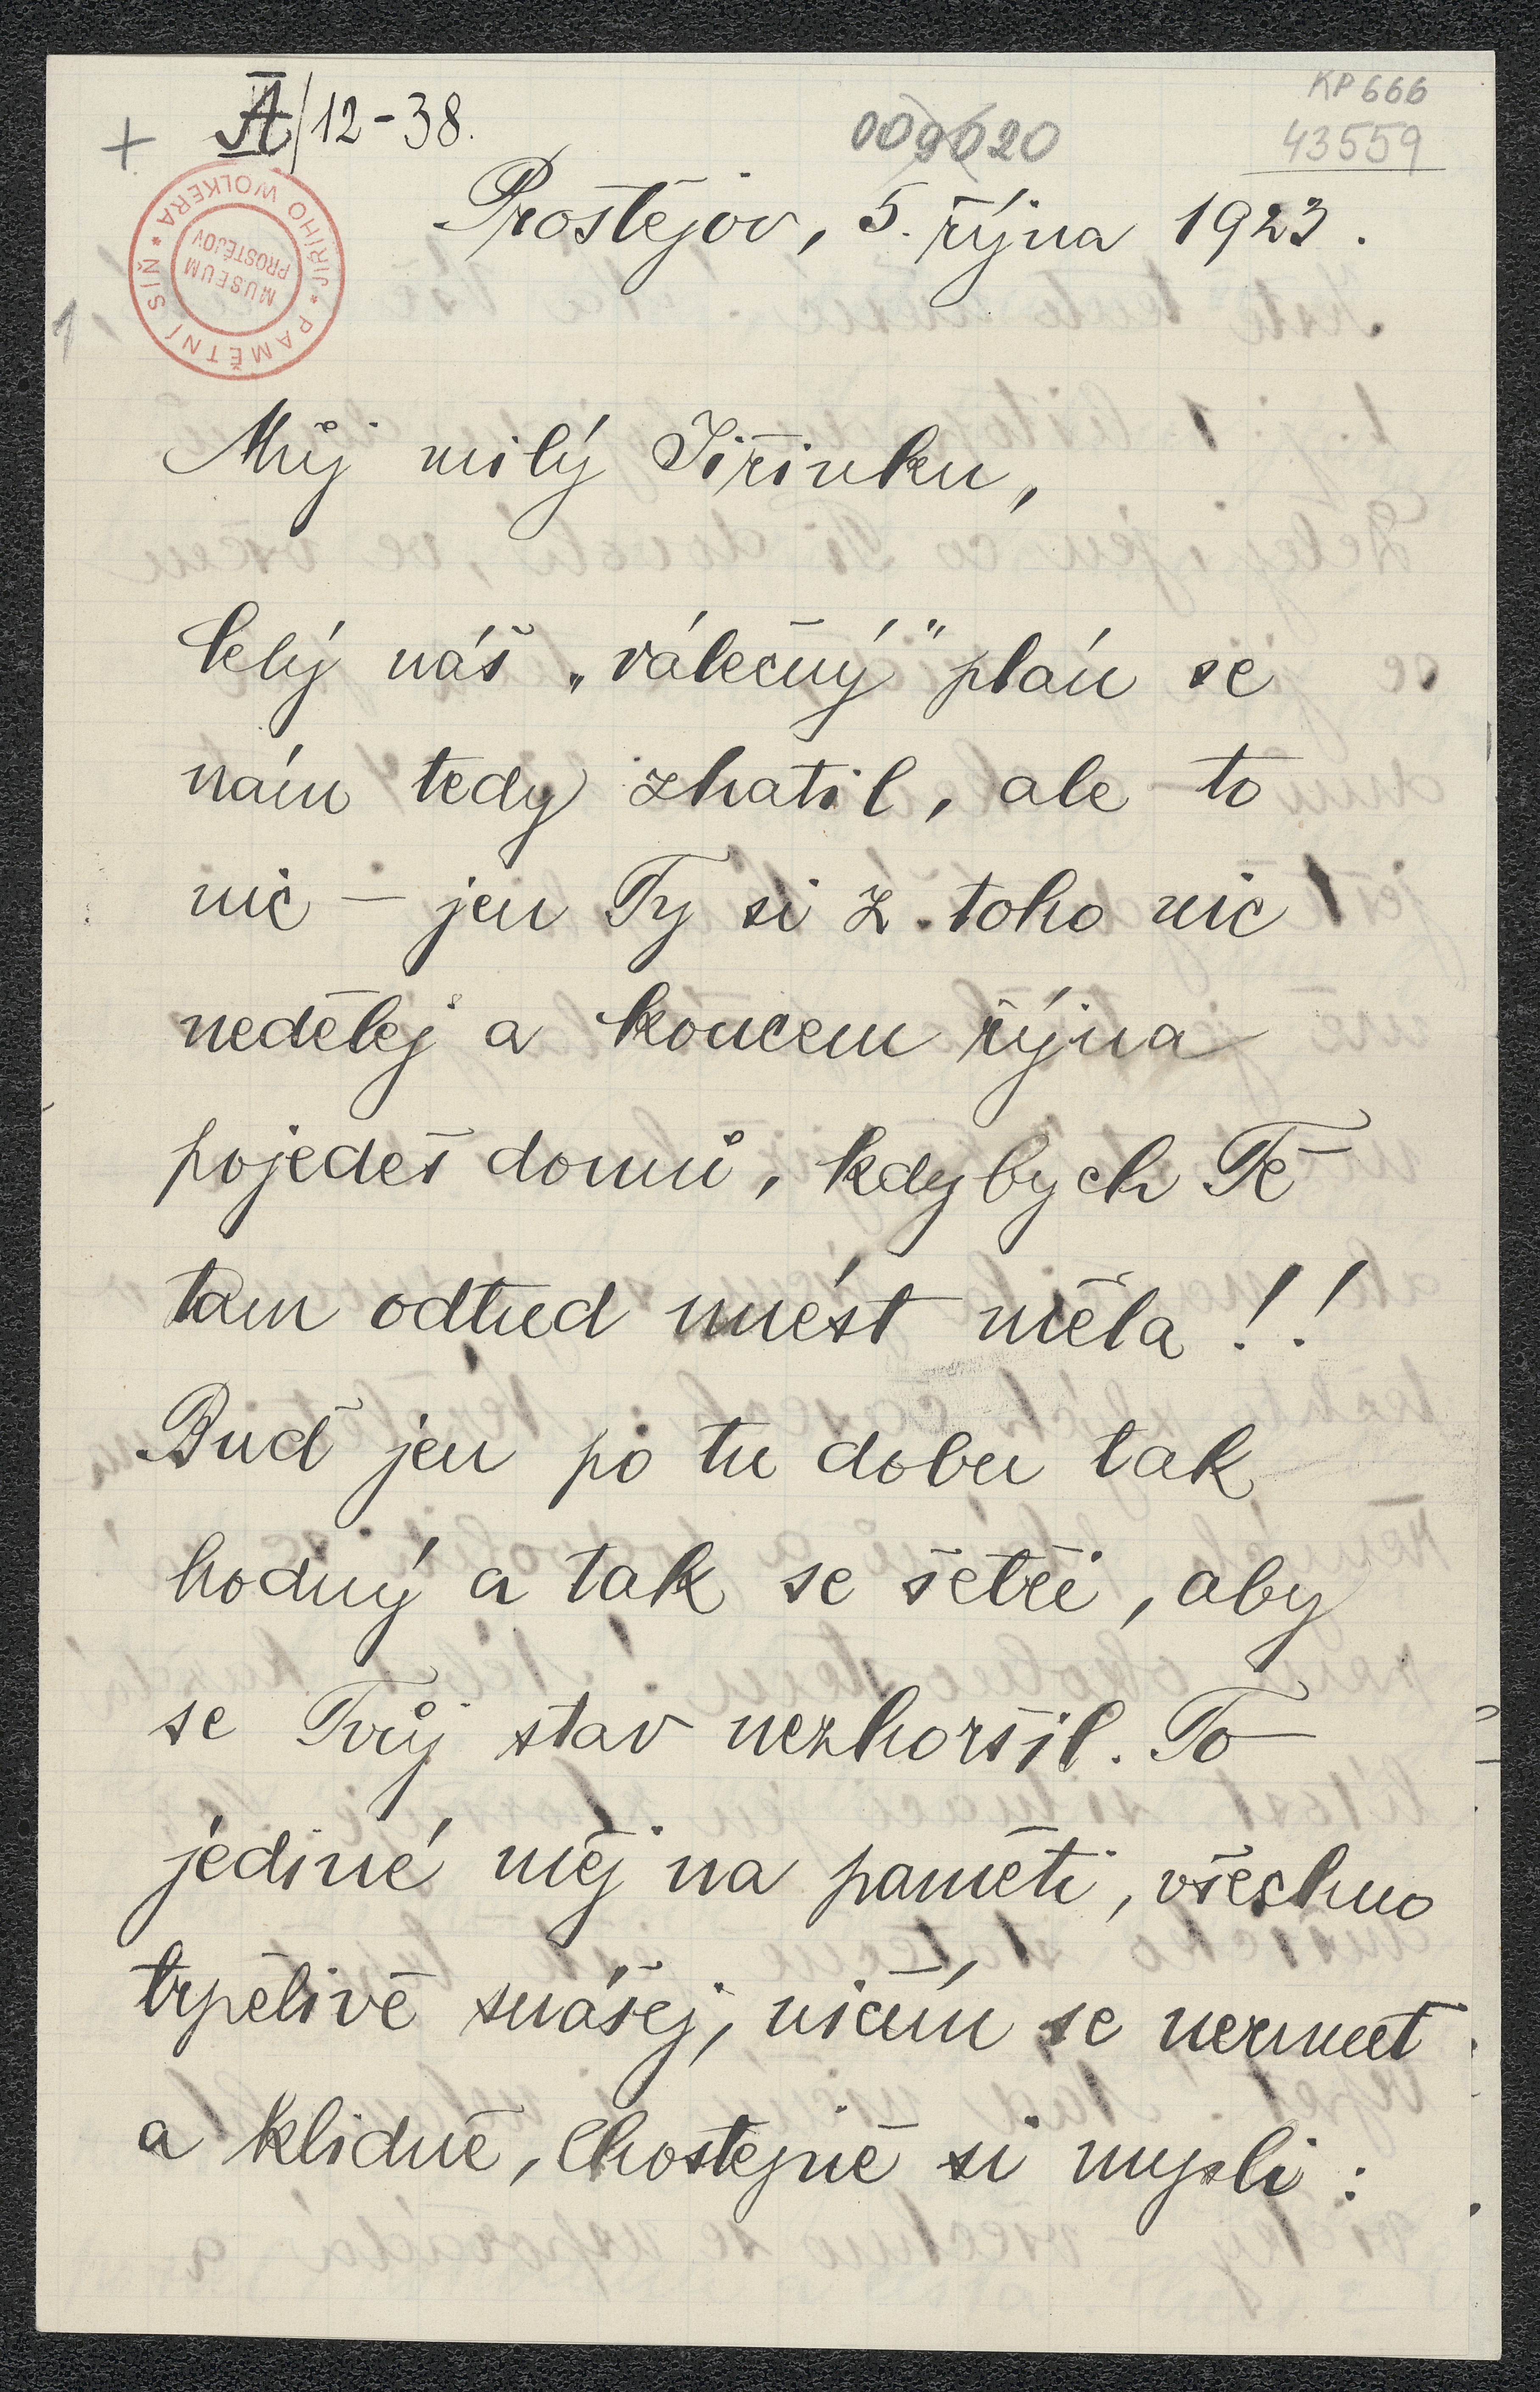 A/12-38.
009020
KP 666
43559
+
PAMĚTNÍ SÍŇ * JIŘÍHO WOLKERA *
MUSEUM
PROSTĚJOV
Prostějov, 5. října 1923.
1
Můj milý Jiřinku,
Celý náš „válečný" plán se
nám tedy zhatil, ale to
nic – jen Ty si z toho nic
nedělej a koncem října
pojedeš domů, kdybych Tě
tam odtud nuést měla!!
Buď jen po tu dobu tak
hodný a tak se šetři, aby
se Tvůj stav nezhoršil. To
jediné měj na paměti, všechno
trpělivě snášej, ničím se nermuť
a klidně, lhostejně si mysli: